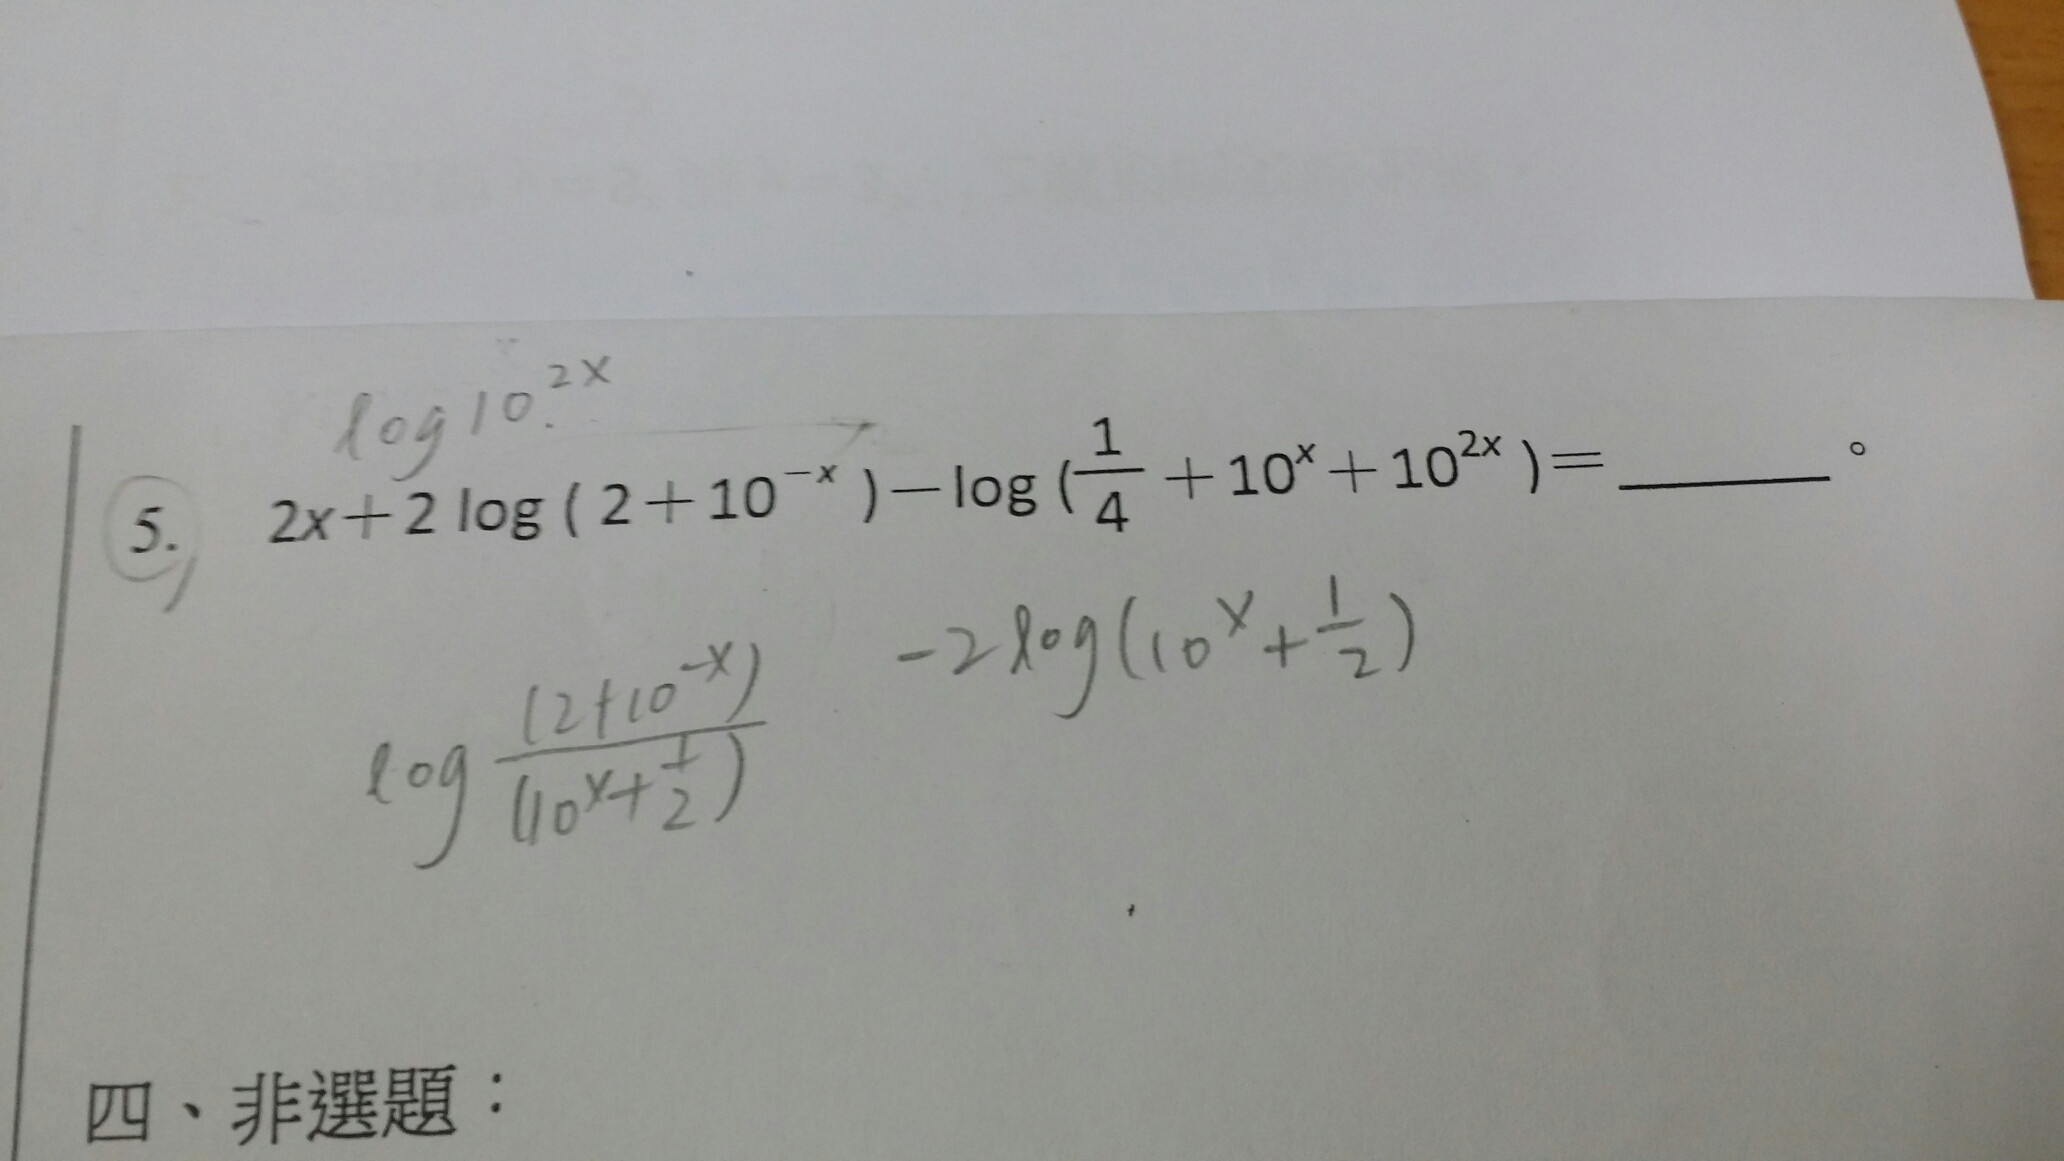 log10^{2x}
5. 2x+2 log ( 2+10^{-x} )-log (\frac{1}{4}+10^{x}+10^{2x} )=______。
-2log(10^{x}+\frac{1}{2})
log \frac{(2+10^{-x})}{(10^{x}+\frac{1}{2})}
四、非選題：